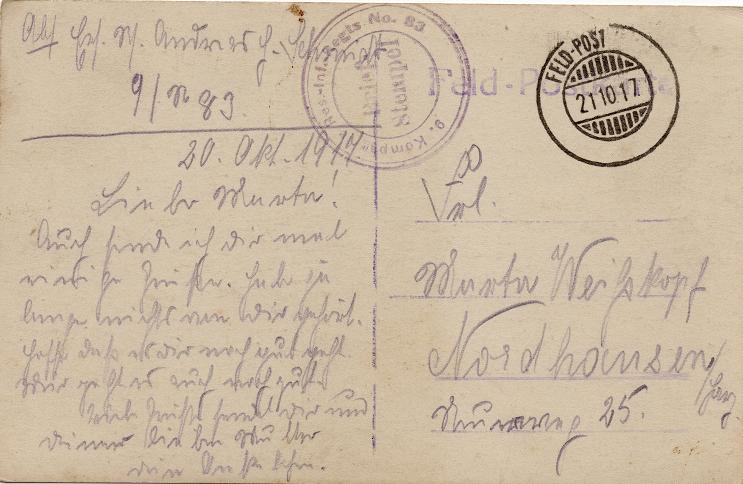 Abs. Ers. R. Andreas G. Schmidt
9/R 83.
Res.-Inf.-Regts No. 83
9. Komp.
Brief Stempel
Feld-Postkarte
FELD-POST
21 10. 17
20. Okt. 1917
Liebe Marta!
Auch sende ich dir mal
einige Grüße. Habe ja
lange nichts von dir gehört.
Hoffe daß es dir noch gut geht.
Mir geht es auch noch gut.
Viele Grüße sendet dir und
deiner lieben Mutter
dein
Frl.
Marta Weißkopf
Nordhausen
/Harz
25.